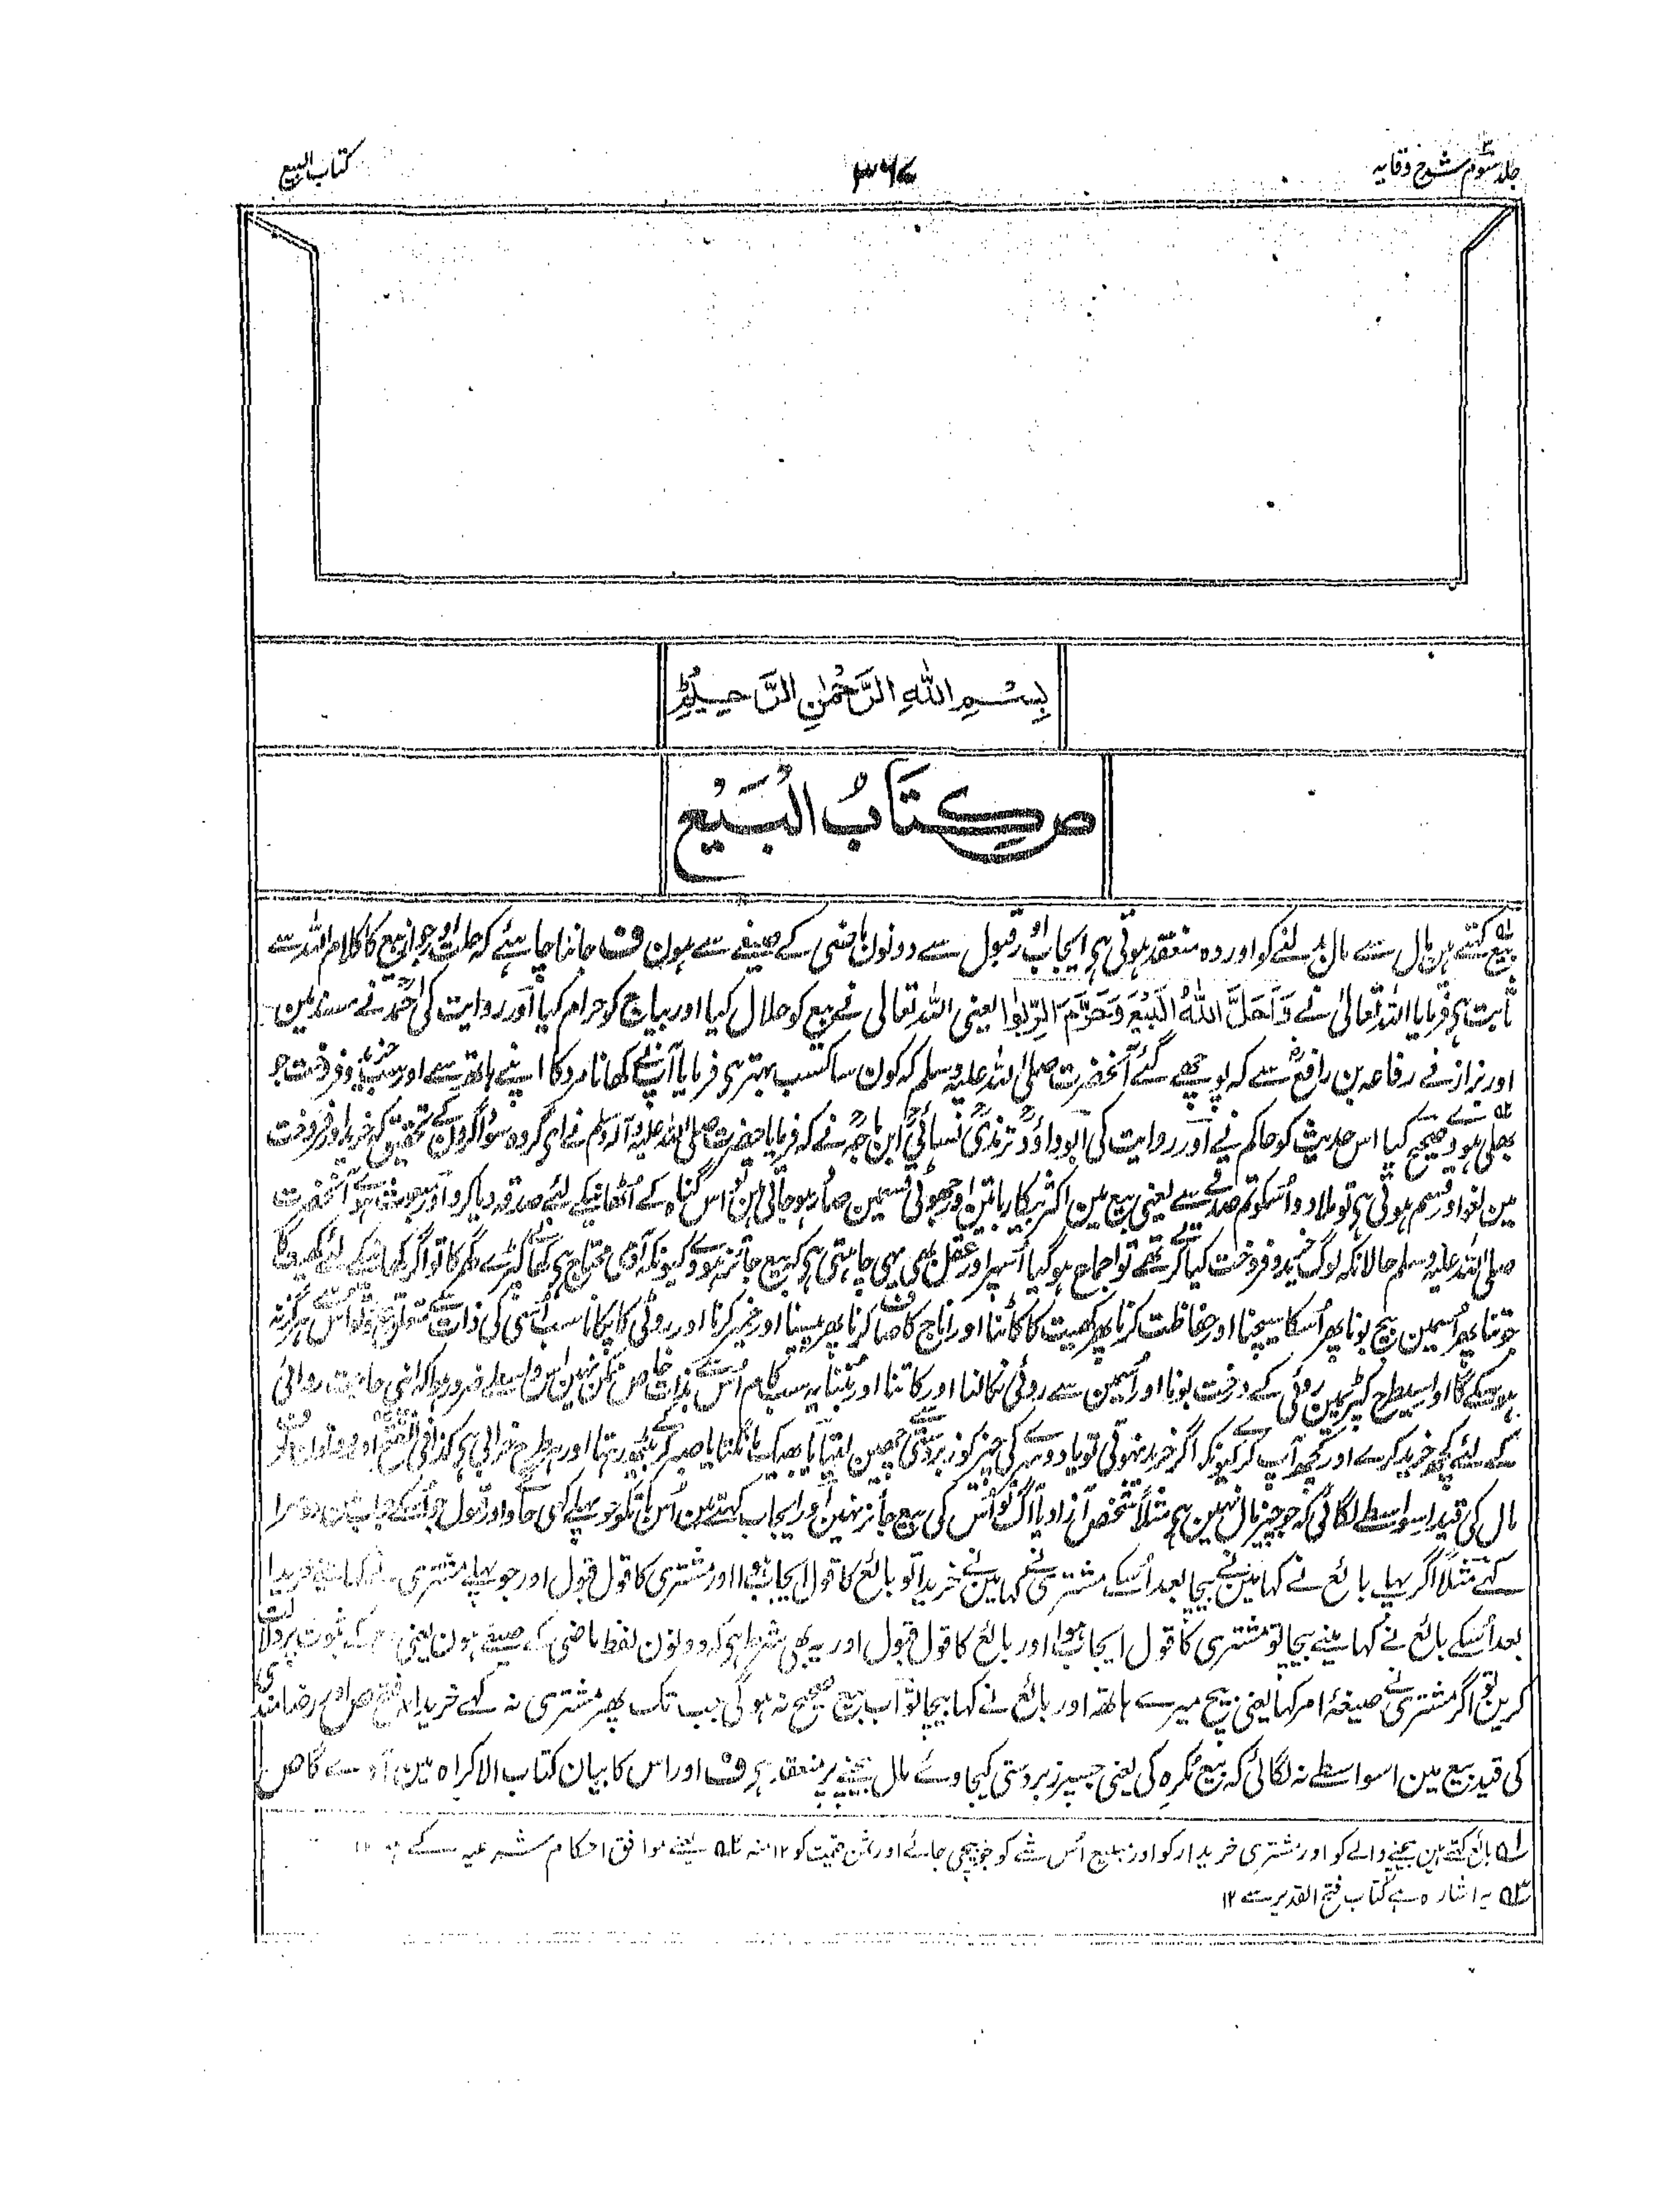 جلد سوم شرح وقایہ
۳۶۷
کتاب البیع
بِسْمِ اللهِ الرَّحْمٰنِ الرَّحِیْمِ
ص کِتَابُ الْبَیْعِ
بیع کہتے ہین مال سے مال بدلنے کو اور وہ منعقد ہوتی ہی ایجاب اور قبول سے دونون ماضی کے صیغے سے ہون ف جاننا چاہئے کہ حلت اور جواز بیع کا کلام اللہ سے
ثابت ہی فرمایا اللہ تعالیٰ نے وَاَحَلَّ اللّٰهُ الْبَیْعَ وَحَرَّمَ الرِّبٰوا یعنی اللہ تعالی نے بیع کو حلال کیا اور بیاج کو حرام کیا اور روایت کی احمد نے مسند مین
اور بزاز نے رفاعہ بن رافع سے کہ پوچھے گئے آنحضرت صلی اللہ علیہ وسلم کہ کون سا کسب بہتر ہی فرمایا آپنے کھانا مرد کا اپنے ہاتھ سے اور خرید و فروخت جو
بھلی ہووے صحیح کیا اس حدیث کو حاکم نے اور روایت کی ابو داؤد ترمذی نسائی ابن ماجہ نے کہ فرمایا حضرت صلی اللہ علیہ وآلہ وسلم نے ای گروہ سوداگرون کے تحقیق کہ خرید اور فروخت
مین لغو اور قسم ہوتی ہی تو ملا دو اُسکو تم صدقے سے یعنی بیع مین اکثر بیکار باتین اور جھوٹی قسمین صادر ہو جاتی ہین تو اس گناہ کے اُٹھانیکے لئے صدقہ دیا کرو اور مبعوث ہوئے آنحضرت
صلی اللہ علیہ وسلم حالانکہ لوگ خرید و فروخت کیا کرتے تھے تو اجماع ہو گیا اُسپر اور عقل بھی یہی چاہتی ہی کہ بیع جائز ہووے کیونکہ آدمی محتاج ہی کھانے کپڑے گھر کا تو اگر کھانیکے لئے کھیت کا
جوتنا پھر اُسمین بیج بونا پھر اُسکا سینچنا اور حفاظت کرنا پھر کھیت کا کاٹنا اور اناج کا صاف کرنا پھر پیسنا اور خمیر کرنا اور روٹی کا پکانا سب اُسی کی ذات سے متعلق ہو تو اس سے ہرگز نہ
ہو سکے گا اور اسیطرح کپڑیمین روئی کے درخت بونا اور اُسمین سے روئی نکالنا اور کاتنا اور بُننا یہ سب کام اُس سے بذات خاص ممکن نہین اس واسطے ضرور ہوا کہ اپنی حاجت روائی
کے لئے کچھ خرید کرے اور کچھ آپ کرے کیونکہ اگر خرید نہوتی تو یا دوسرے کی چیز کو زبردستی چھین لیتا یا بھیک مانگتا یا صبر کرکے بیٹھ رہتا اور ہر طرح خرابی ہی کذا فی الفتح اور دونون
مال کی قید اسواسطے لگائی کہ جو چیز مال نہین ہی مثلاً شخص آزاد یا اُسکی بیع جائز نہین اور ایجاب کہتے ہین اُس بات کو جو پہلے کہی جاوے اور قبول جو اُسکے جواب مین دوسرا
کہے مثلاً اگر پہلے بائع نے کہا مین نے بیچا بعد اُسکے مشتری نے کہا مین نے خریدا تو بائع کا قول ایجاب ہوا اور مشتری کا قول قبول اور جو پہلے مشتری نے کہا مینے خریدا
بعد اُسکے بائع نے کہا مینے بیچا تو مشتری کا قول ایجاب ہوا اور بائع کا قول قبول اور یہ بھی شرط ہی کہ دونون لفظ ماضی کے صیغے ہون یعنی کے ثبوت پر دلالت
کرین تو اگر مشتری نے صیغۂ امر کہا یعنی بیچ میرے ہاتھ اور بائع نے کہا بیچا تو اب بیع صحیح نہ ہوگی جب تک پھر مشتری نہ کہے خریدا فتح ص اور رضامندی
کی قید بیع مین اسواسطے نہ لگائی کہ بیع مُکرہ کی یعنی جسپر زبردستی کیجاوے مال بیچنے پر منعقد ہی ف اور اس کا بیان کتاب الاکراہ مین آوے گا ص
لہ بائع کہتے ہین بیچنے والے کو اور مشتری خریدار کو اور مبیع اُس شے کو جو بیچی جائے اور ثمن قیمت کو ۱۲ منہ ۲ہ یعنے موافق احکام شرعیہ کے
۳ہ یہ اشارہ ہے کتاب فتح القدیر سے ۱۲